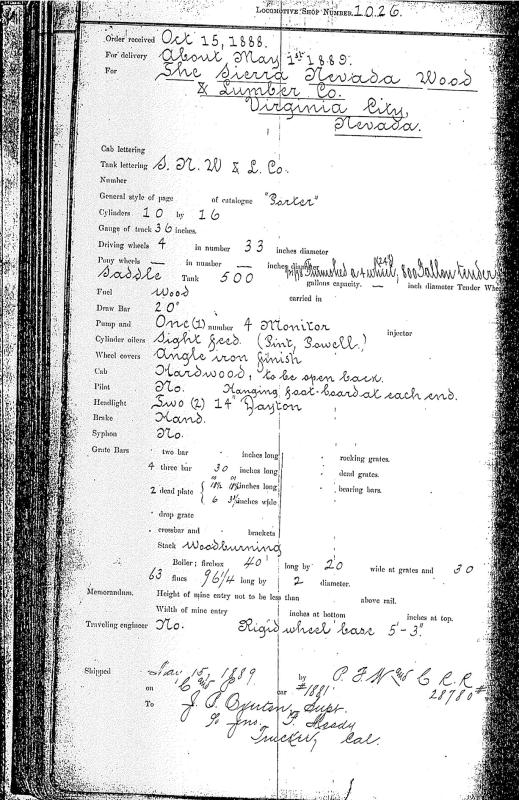 LOCOMOTIVE SHOP NUMBER 1026.
Order received Oct 15, 1888.
For delivery About May 1st 1889.
For The Sierra Nevada Wood
& Lumber Co.
Virginia City,
Nevada.
Cab lettering
Tank lettering S. N. W & L. Co.
Number
General style of page of catalogue "Porter"
Cylinders 10 by 16
Gauge of track 36 inches.
Driving wheels 4 in number 33 inches diameter
Pony wheels — in number — inches diameter
Furnished a 4 wheel, 800 Gallon tender
Saddle Tank 500 gallons capacity. — inch diameter Tender Whe
Fuel Wood carried in
Draw Bar 20"
Pump and One (1) number 4 Monitor injector
Cylinder oilers Sight feed. (Pint, Powell,)
Wheel covers Angle iron finish
Cab Hardwood, to be open back.
Pilot No. Hanging foot-board at each end.
Headlight Two (2) 14" Dayton
Brake Hand.
Syphon No.
Grate Bars two bar inches long rocking grates.
4 three bar 30 inches long dead grates.
2 dead plate inches long bearing bars.
6 inches wide
drop grate
crossbar and brackets
Stack Woodburning
Boiler; firebox 40 long by 20 wide at grates and 30
63 flues 96 1/4 long by 2 diameter.
Memorandum. Height of mine entry not to be less than above rail.
Width of mine entry inches at bottom inches at top.
Traveling engineer No. Rigid wheel base 5'-3".
Shipped 15 1889 by P. F. W and C R. R
on car #1881 28780#
To J. P. Supt.
Jno. F.
Truckee, Cal.